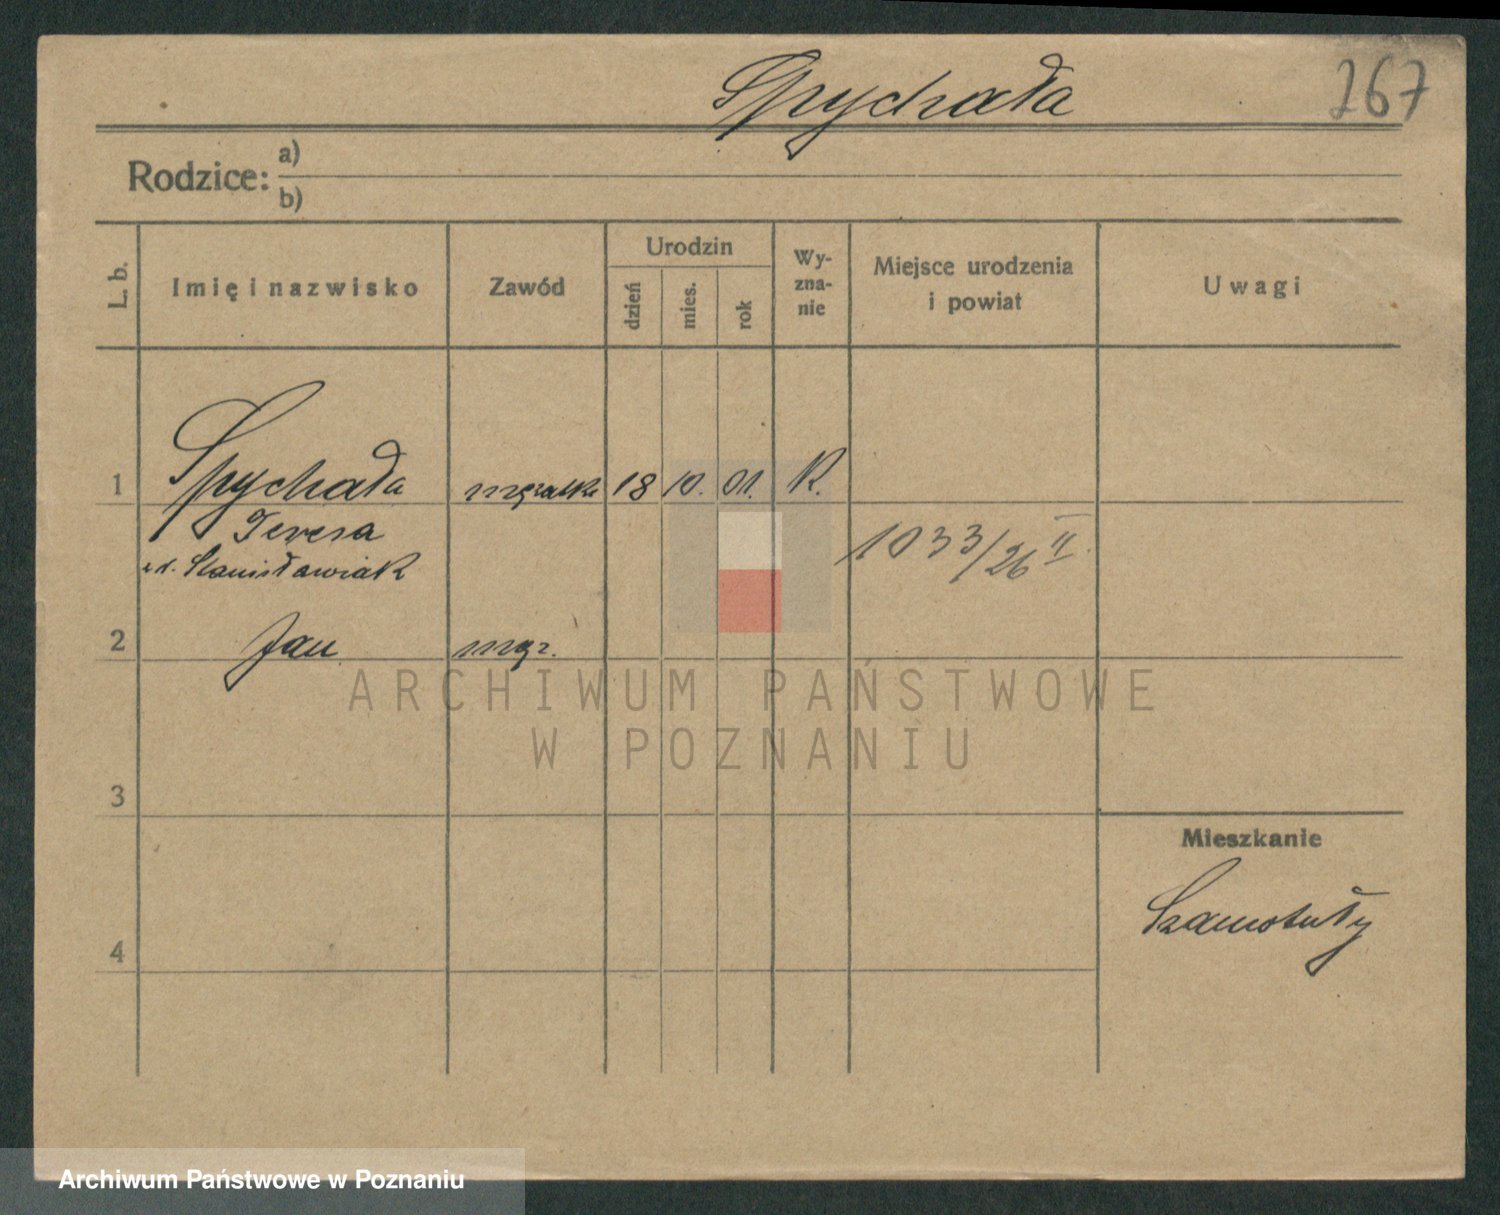 Spychała 267
Rodzice: a)
b)
L. b. Imię i nazwisko Zawód Urodzin dzień mies. rok Wy-zna-nie Miejsce urodzenia i powiat Uwagi
1 Spychała mężatka 18 10. 01. K.
Teresa 1033/26 II
Stanisławiak
2 Jan
ARCHIWUM PAŃSTWOWE
W POZNANIU
3
Mieszkanie
Szamotuły
4
Archiwum Państwowe w Poznaniu